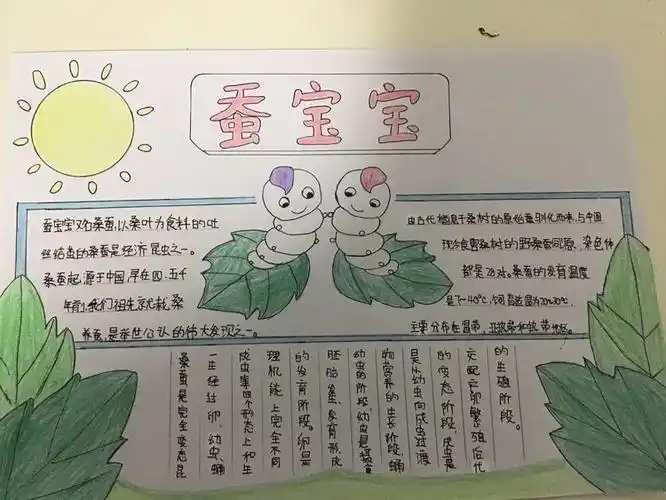 蚕宝宝
蚕宝宝又名桑蚕,以桑叶为食料的吐
丝结茧的桑蚕是经济昆虫之一。
桑蚕起源于中国,早在四、五千
年前,我们祖先就栽桑
养蚕,是举世公认的伟大发现之一。
由古代栖息于桑树的原始蚕驯化而来,与中国
现今食害桑树的野桑蚕同源,染色体
都是28对。桑蚕的发育温度
是7~40℃,饲育适温为20~30℃,
主要分布在温带、亚热带和热带地区。
桑蚕是完全变态昆
一生经过卵、幼虫、蛹
成虫等四个形态上和生
理机能上完全不同
的发育阶段。卵是
胚胎发生、发育形成
幼虫的阶段,幼虫是摄食
物营养的生长阶段,蛹
是从幼虫向成虫过渡
的变态阶段,成虫是
交配产卵繁殖后代
的生殖阶段。